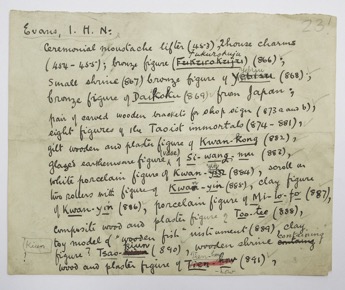 231
Evans, I. H. N:-
Ceremonial moustache lifter (453); 2 house charms
Fukurokuju
(454-455); bronze figure (Fukurokuju) (866);
Ebisu
Small shrine (867) bronze figure of Yebisu (868);
bronze figure of Daikoku (869) from Japan;
pair of carved wooden brackets for shop sign (873 a and b),
eight figures of the Taoist immortals (874-881),
gilt wooden and plaster figure of Kwan-Kong (882),
glazed earthenware figure of Si-wang-mu (883),
white porcelain figure of Kwan-yin (884), scroll on
two rollers with figure of Kwan-yin (885), clay figure
of Kwan-yin (886), porcelain figure of Mi-lo-fo (887),
composite wood and plaster figure of (888),
toy model of "wooden fish" instrument (889), clay
containing
figure? Tsao- (890), wooden shrine containing
wood and plaster figure of (891),